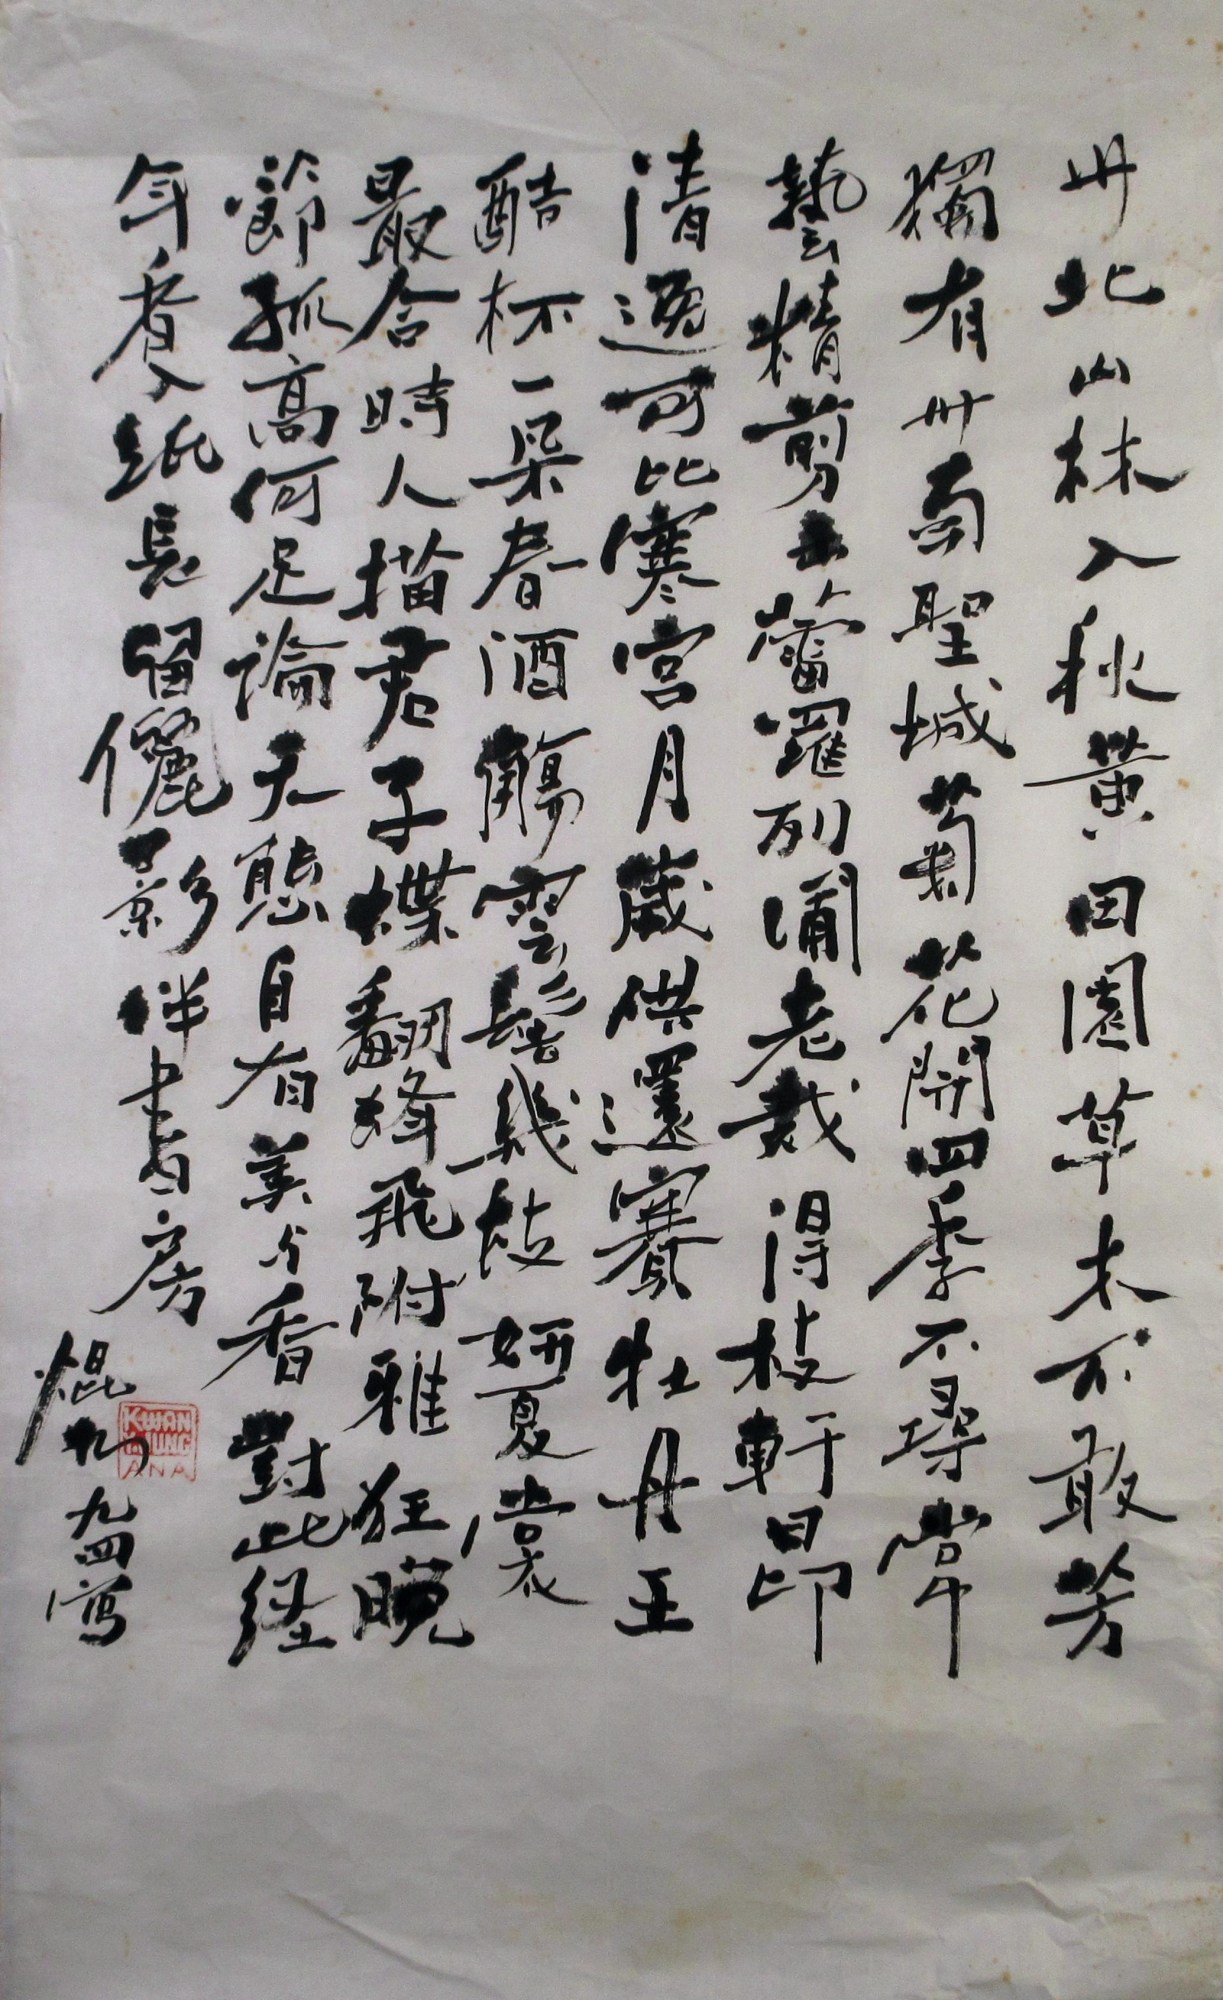 州北山林入秋黃田園草木不敢芳
獨有州南聖城蘭花開四季不尋常
藝精剪玉蕾羅列滿老栽得枝軒昂
清逸可比寒宮月歲供還賽牡丹王
酷杯一朵春酒觴雲鬢幾枝妍夏裳
最合時人描君子蝶翻蜂飛附雅狂晚
節孤高何足論天態自有美與香對此經
年看入紙長留儷影伴書房
焜 九四寫
KWAN
HUNG
ANA